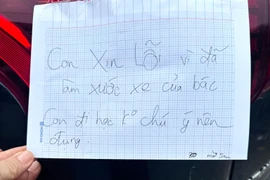 Con Xin Lỗi vì đã
làm xước xe của bác
Con đi học kº chú ý nên
đụng.